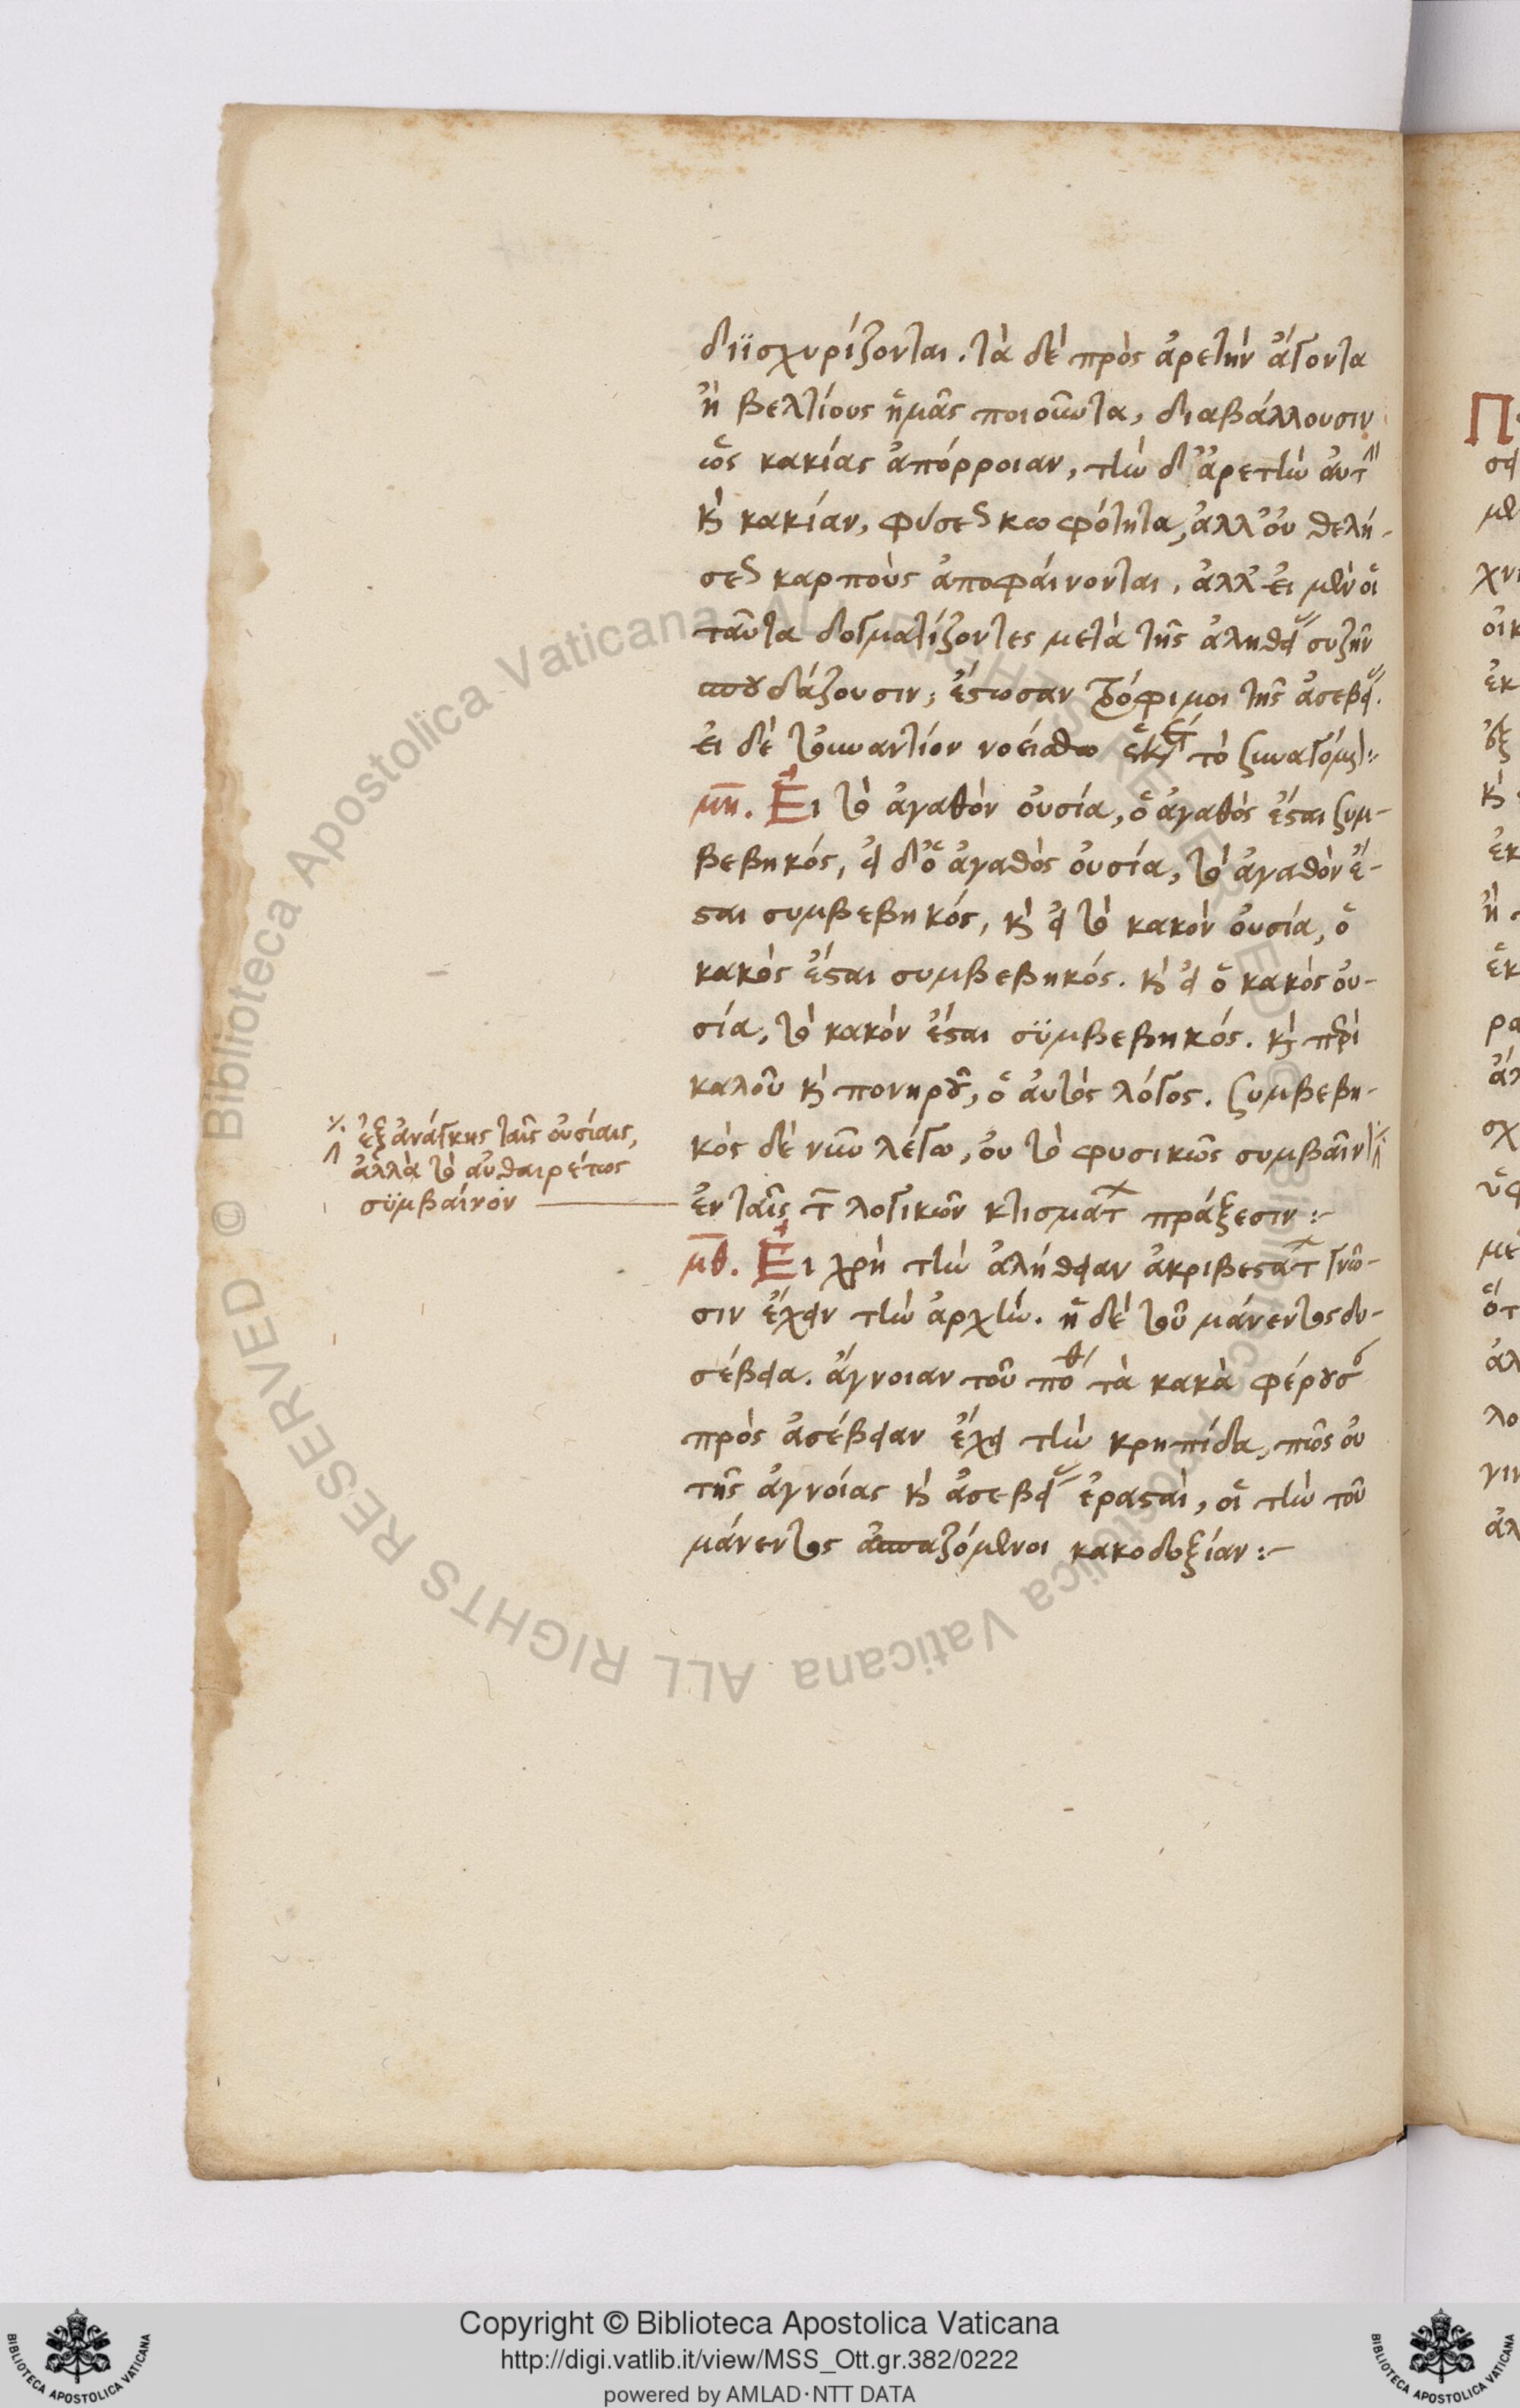 διϊσχυρίζονται. τὰ δὲ πρὸς ἀρετὴν ἄγοντα
ἢ βελτίους ἡμᾶς ποιοῦντα, διαβάλλουσιν
ὡς κακίας ἀπόρροιαν, τὴν δ' ἀρετὴν αὐτὴν
καὶ κακίαν, φύσεως κωφότητα, ἀλλ' οὐ θελή-
σεως καρποὺς ἀποφαίνονται. ἀλλ' εἰ μὲν οἱ
ταῦτα δογματίζοντες μετὰ τῆς ἀληθείας συζῆν
σπουδάζουσιν, ἔστωσαν τρόφιμοι τῆς ἀσεβείας.
εἰ δὲ τοὐναντίον νοείσθω ἑκάστῳ τὸ συναγόμενον:
μη. Εἰ τὸ ἀγαθὸν οὐσία, ὁ ἀγαθὸς ἔσται συμ-
βεβηκός, εἰ δ' ὁ ἀγαθὸς οὐσία, τὸ ἀγαθὸν ἔ-
σται συμβεβηκός, καὶ εἰ τὸ κακὸν οὐσία, ὁ
κακὸς ἔσται συμβεβηκός. καὶ εἰ ὁ κακὸς οὐ-
σία, τὸ κακὸν ἔσται σϋμβεβηκός. καὶ περὶ
καλοῦ καὶ πονηροῦ, ὁ αὐτὸς λόγος. συμβεβη-
κὸς δὲ νῦν λέγω, οὐ τὸ φυσικῶς συμβαῖνον
ἐξ ἀνάγκης ταῖς οὐσίαις,
ἀλλὰ τὸ αὐθαιρέτως
σϋμβαίνον
ἐν ταῖς τῶν λογικῶν κτισμάτων πράξεσιν:-
μθ. Εἰ χρὴ τὴν ἀλήθειαν ἀκριβεστάτην γνῶ-
σιν ἔχειν τὴν ἀρχήν. ἡ δὲ τοῦ μάνεντος δυ-
σέβεια. ἄγνοιαν τοῦ πόθεν τὰ κακὰ φέρουσα
πρὸς ἀσέβειαν ἔχει τὴν κρηπίδα, πῶς οὐ
τῆς ἀγνοίας καὶ ἀσεβείας ἐρασταὶ, οἱ τὴν τοῦ
μάνεντος ἀσπαζόμενοι κακοδοξίαν:-
Copyright © Biblioteca Apostolica Vaticana
http://digi.vatlib.it/view/MSS_Ott.gr.382/0222
powered by AMLAD·NTT DATA